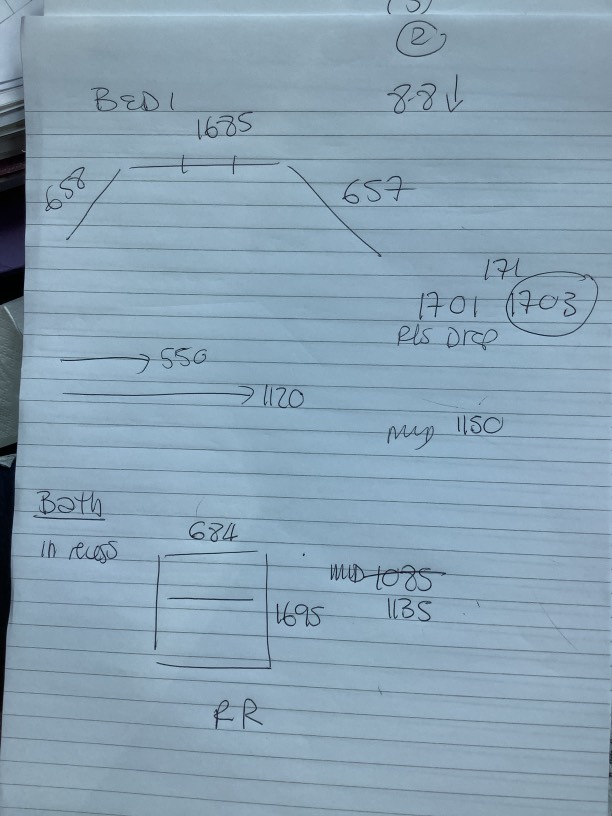 (3)
2
BED 1
8-8↓
1685
658
657
171
1701 1703
PLS DROP
→550
→1120
MID 1150
Bath
in recess
684
MID 1085
1135
1695
RR